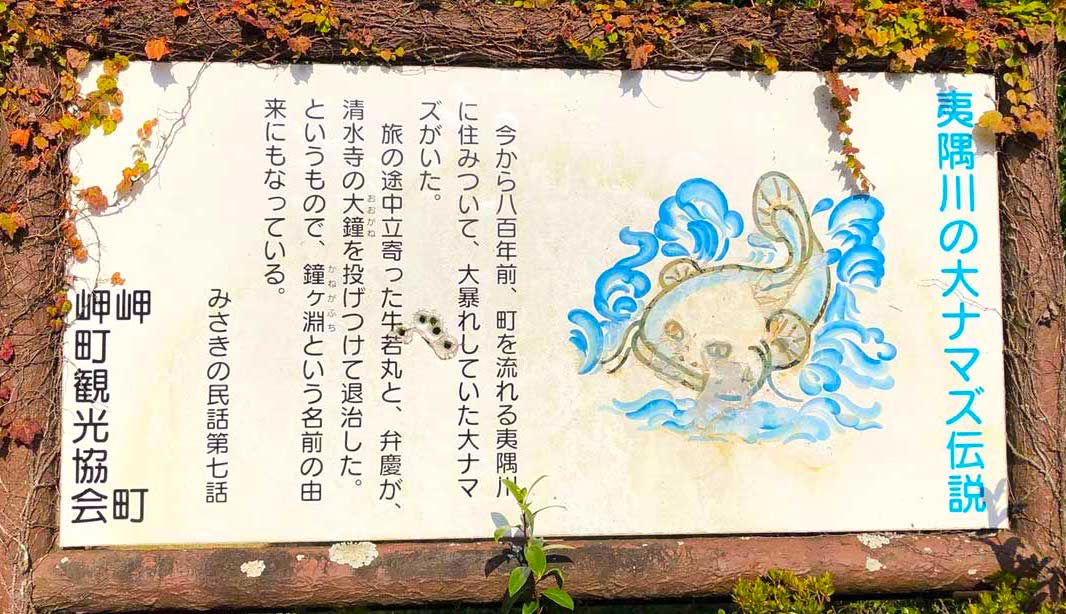 夷隅川の大ナマズ伝説
今から八百年前、町を流れる夷隅川
に住みついて、大暴れしていた大ナマ
ズがいた。
旅の途中立寄った牛若丸と、弁慶が、
清水寺の大鐘を投げつけて退治した。
おおがね
というもので、鐘ヶ淵という名前の由
かねがふち
来にもなっている。
みさきの民話第七話
岬町
岬町観光協会